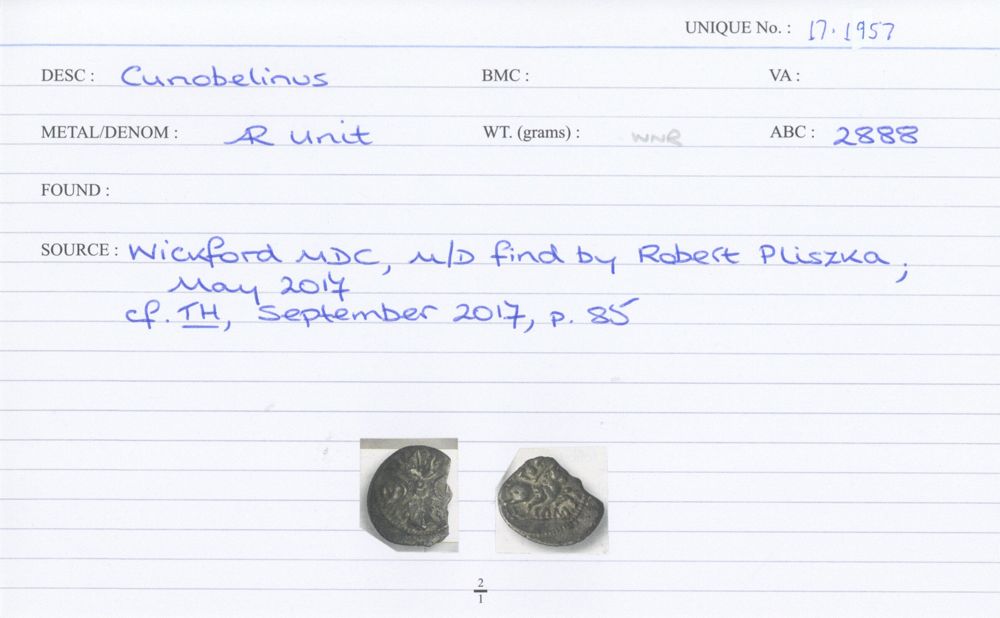 UNIQUE No. : 17.1957
DESC : Cunobelinus BMC : VA :
METAL/DENOM : AR unit WT. (grams) : WNR ABC : 2888
FOUND :
SOURCE : Wickford MDC, M/D find by Robert Pliszka ;
May 2017
cf. TH, September 2017, p. 85
2
1